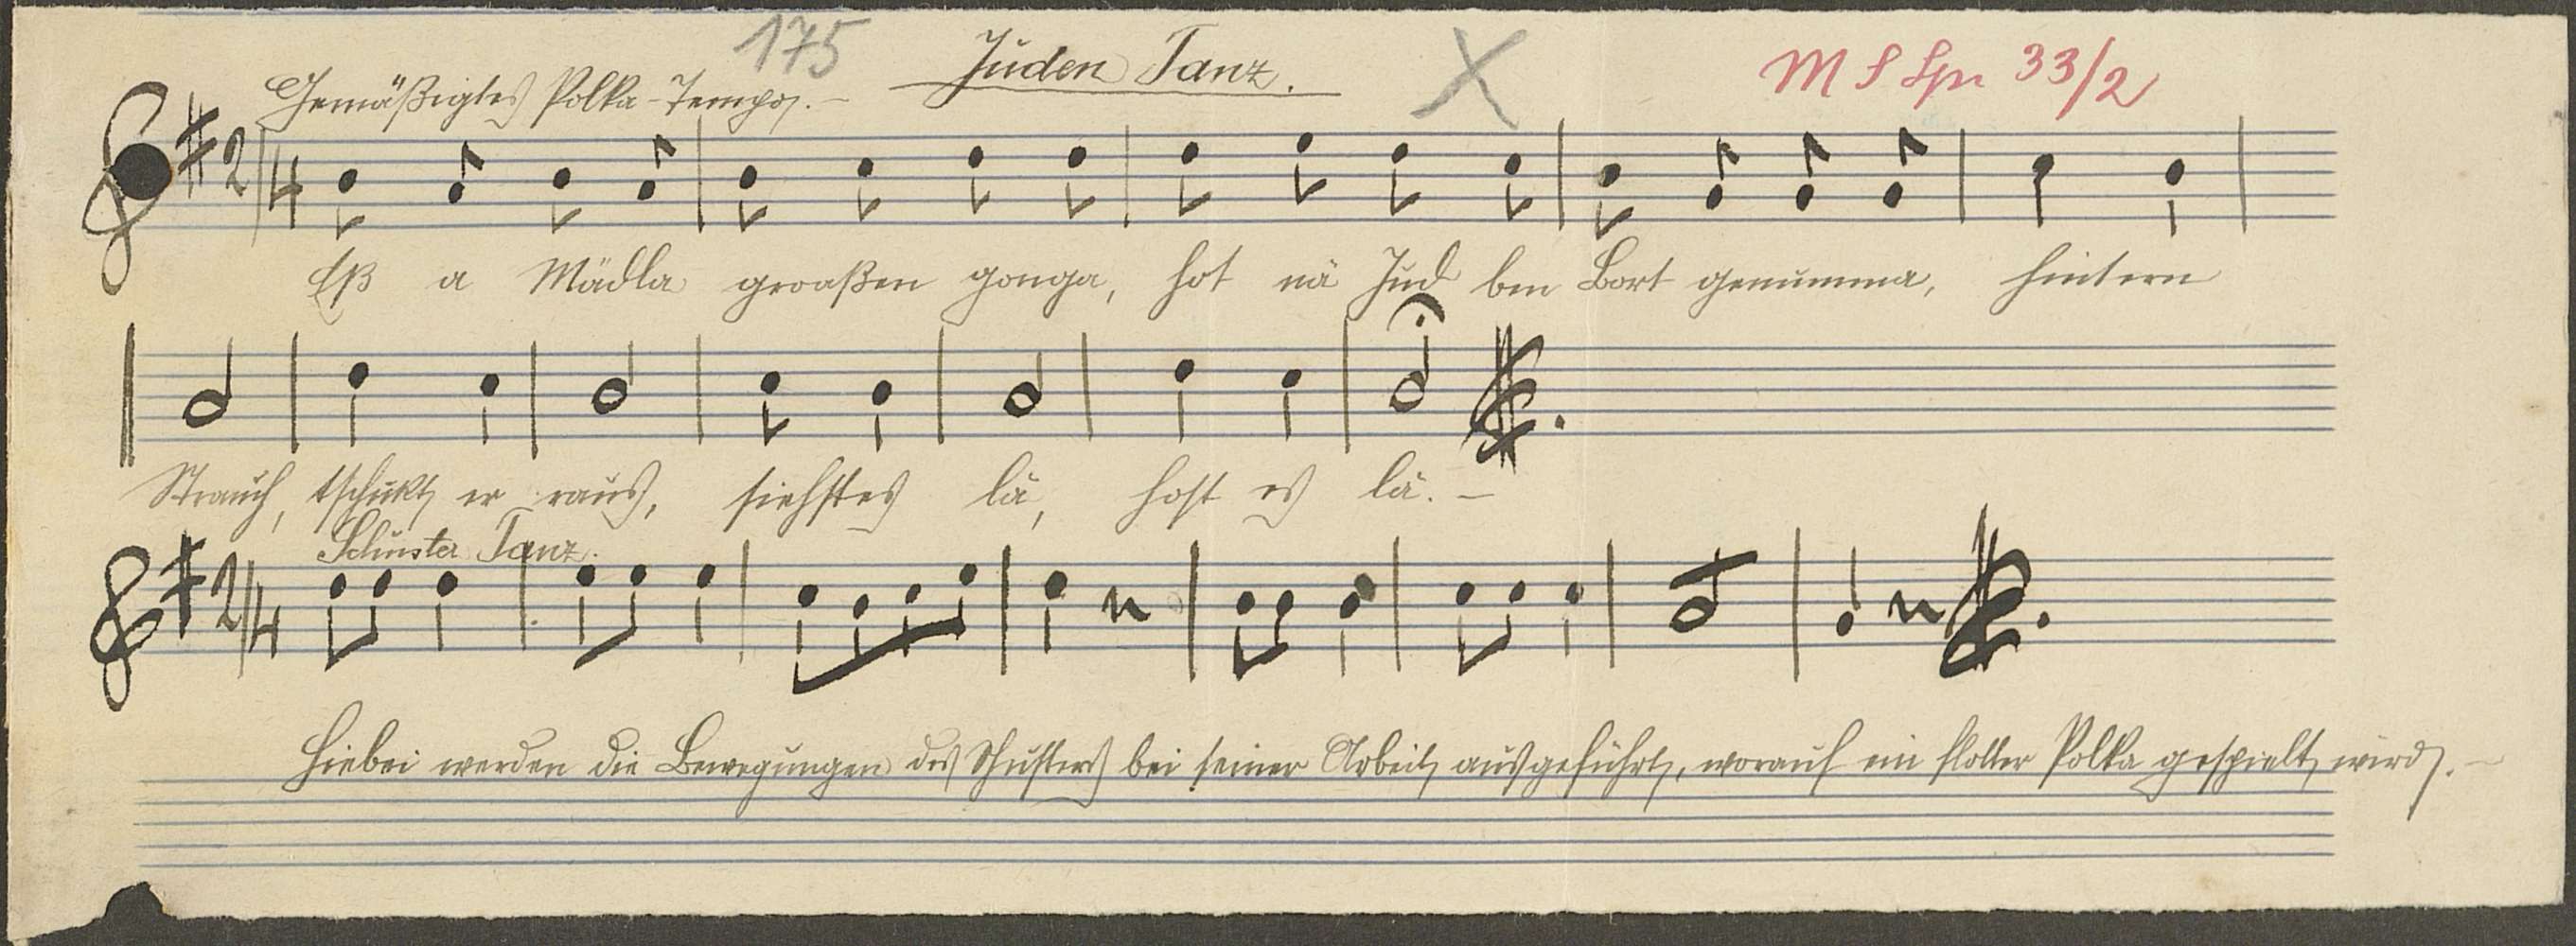 175 Juden Tanz. X M S Spr 33/2
Gemäßigtes Polka-Tempo. –
2/4
Eß a Mädla groaßen gonga, hot nä Jud ben Bort genumma, hintern
Strauch, tschukt er raus, siehstes lä, host es lä. –
Schuster Tanz.
2/4
Hiebei werden die Bewegungen des Schusters bei seiner Arbeit ausgeführt, worauf ein flotter Polka gespielt wird. –